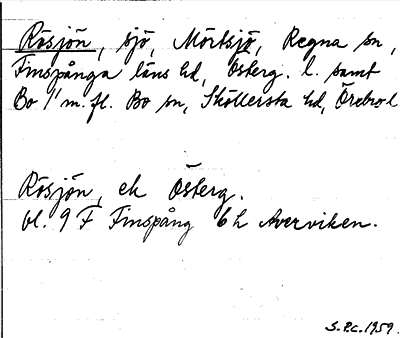 Rösjön, sjö, Mörtsjö, Regna sn,
Finspånga läns hd, Österg. l. samt
Bo 1/1 m. fl. Bo sn, Sköllersta hd, Örebro l
Rösjön, ek Österg.
bl. 9 F Finspång 6 h Averviken.
S.P.C. 1959.